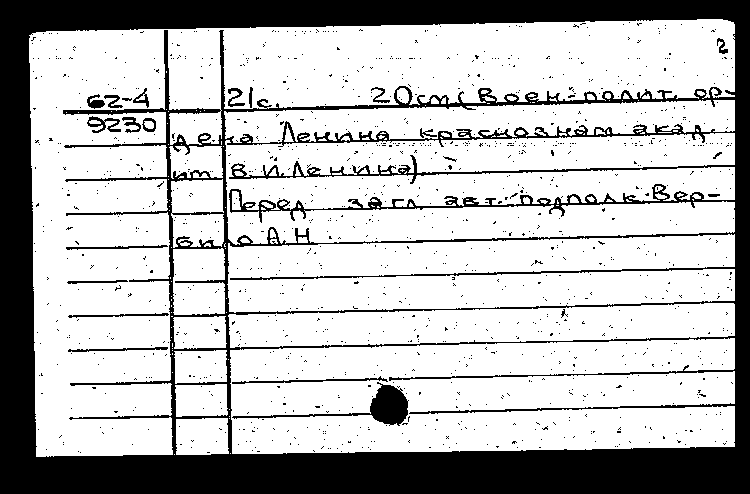 2
62-4 21с. 20см(Воен.-полит. ор-
9230
дена Ленина краснознам акад.
им В.И.Ленина).
Перед загл. авт. подполк. Вер-
било А.Н.